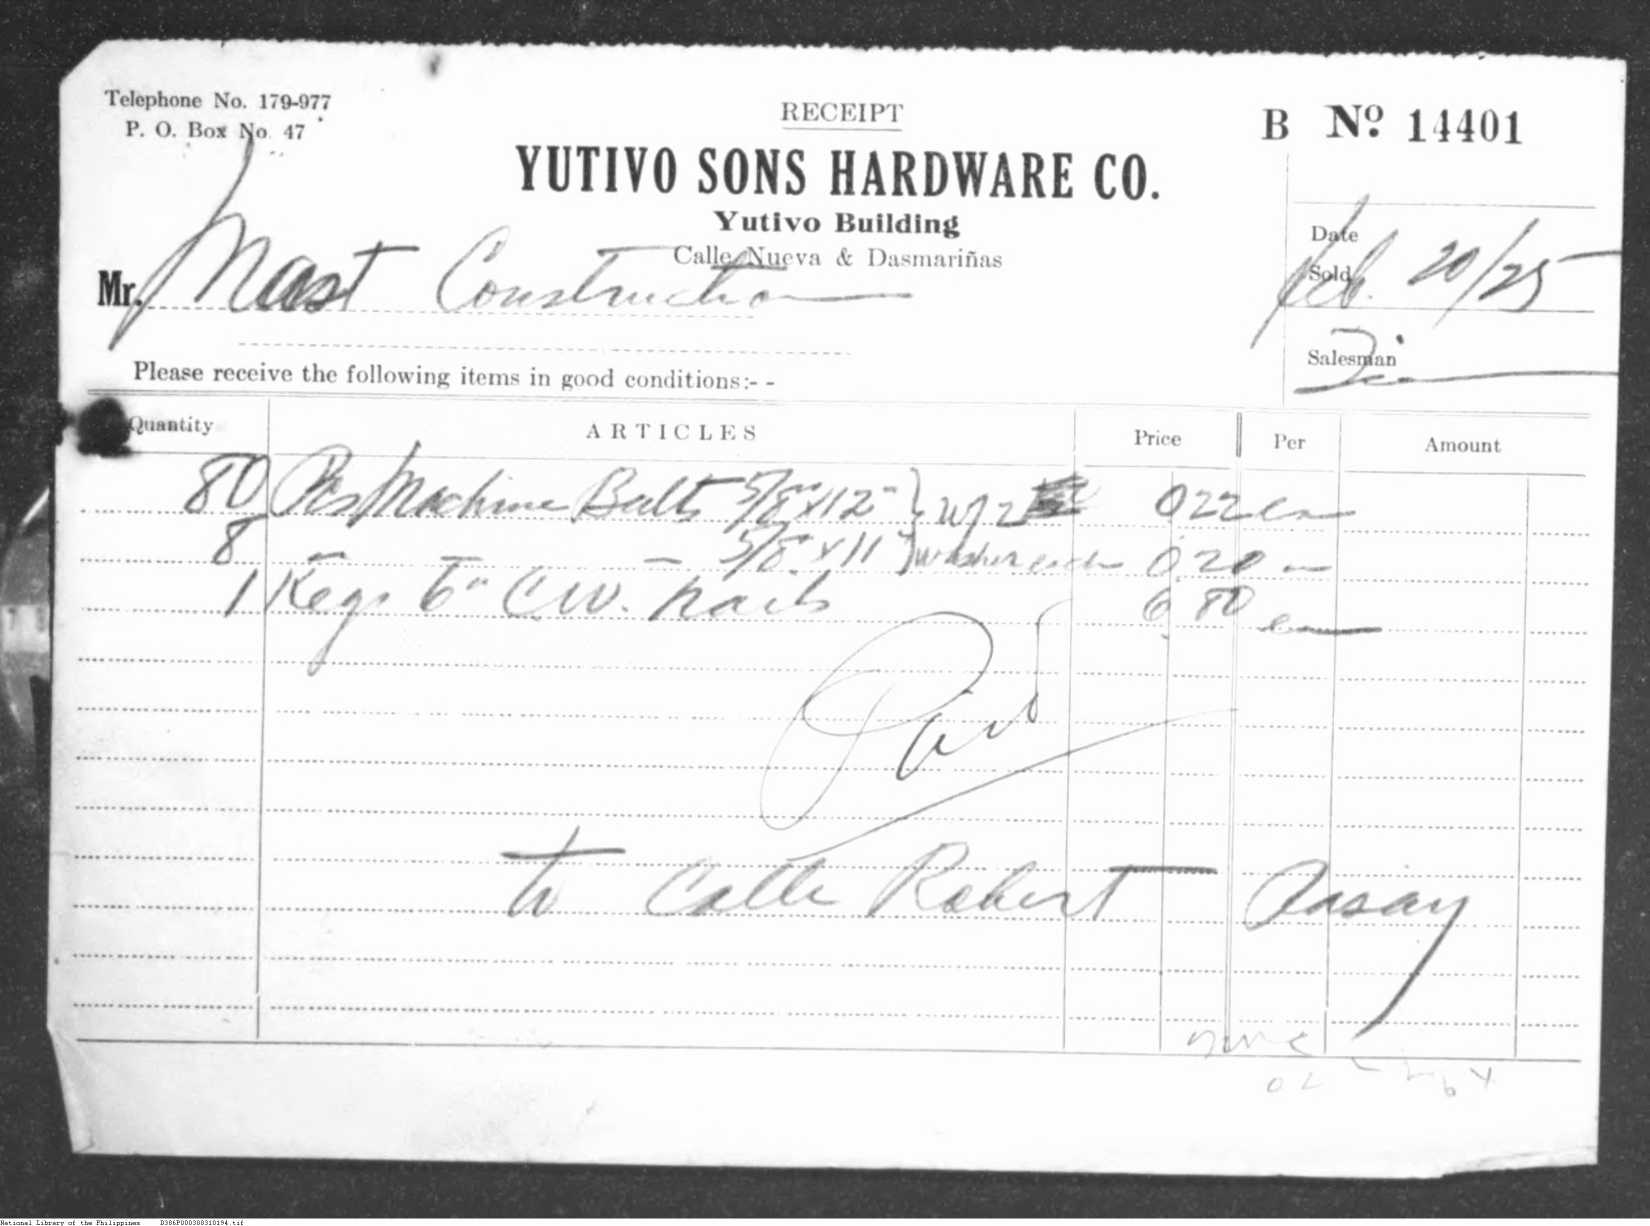 Telephone No. 179-977
P. O. Box No. 47
RECEIPT
B Nº 14401
YUTIVO SONS HARDWARE CO.
Yutivo Building
Calle Nueva & Dasmariñas
Date Sold Feb. 20/25
Mr. Mast Construction
Salesman
Please receive the following items in good conditions:- -
Quantity ARTICLES Price Per Amount
80 Pcs Machine Bolts 5/8" x 12" } W/ 2 0 22 ea
8 " " 5/8" x 11" } washer each 0 20 ea
1 Keg 6" C W. nails 6 80 ea
Paid
to Calle Robert Pasay
National Library of the Philippines D386P000388310194.tif